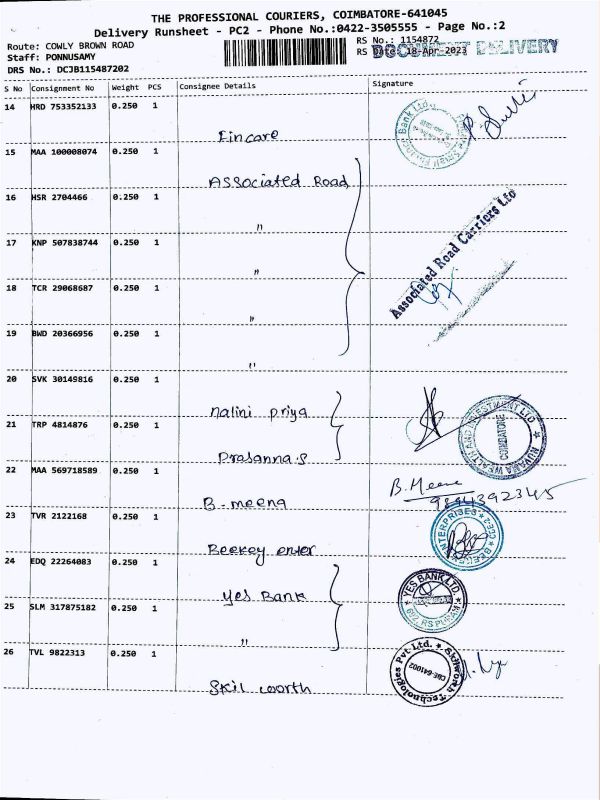 THE PROFESSIONAL COURIERS, COIMBATORE-641045
Delivery Runsheet - PC2 - Phone No.:0422-3505555 - Page No.:2
Route: COWLY BROWN ROAD
Staff: PONNUSAMY
DRS No.: DCJB115487202
RS No.: 1154872
RS 18-Apr-2023
DOCUMENT DELIVERY
S No Consignment No Weight PCS Consignee Details Signature
14 HRD 753352133 0.250 1
Fincare
Small Finance Bank Ltd.
15 MAA 100008074 0.250 1
Associated Road
16 HSR 2704466 0.250 1
"
17 KNP 507838744 0.250 1
"
Associated Road Carriers Ltd
18 TCR 29068687 0.250 1
"
19 BWD 20366956 0.250 1
"
20 SVK 30149816 0.250 1
nalini priya
21 TRP 4814876 0.250 1
Prasanna.s
WEALTH AND INVESTMENT LTD
COIMBATORE
22 MAA 569718589 0.250 1
B-meena
B.Meena
23 TVR 2122168 0.250 1
Beekey enter
ENTERPRISES
CBE-2
24 EDQ 22264083 0.250 1
yes Bank
YES BANK LTD.
25 SLM 317875182 0.250 1
"
692, RS PURAM
26 TVL 9822313 0.250 1
Skil worth
Skilworth Technologies Pvt Ltd.
CBE-641002